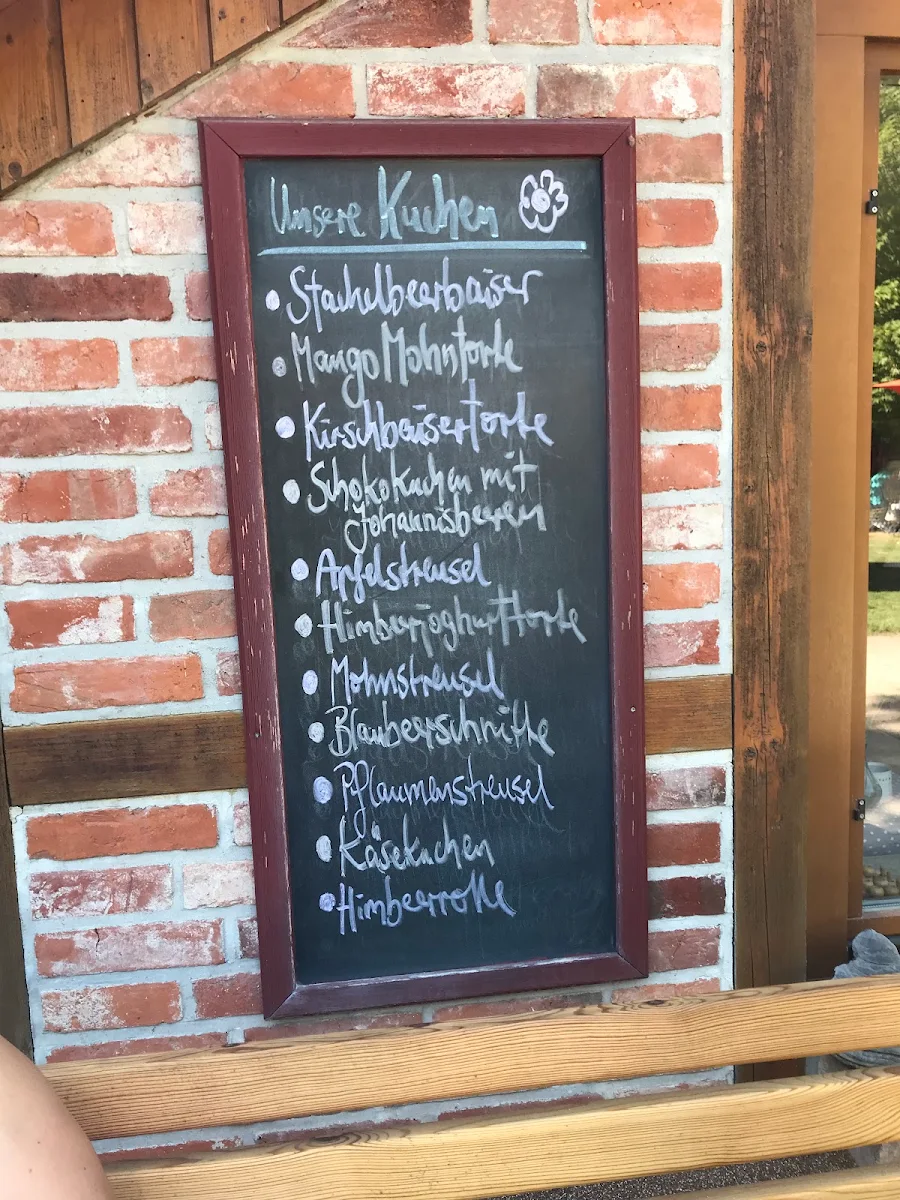 Unsere Kuchen
Stachelbeerbaiser
Mango Mohntorte
Kirschbaisertorte
Schokokuchen mit
Johannisbeeren
Apfelstreusel
Himbeerjoghurttorte
Mohnstreusel
Blaubeerschnitte
Pflaumenstreusel
Käsekuchen
Himbeerrolle